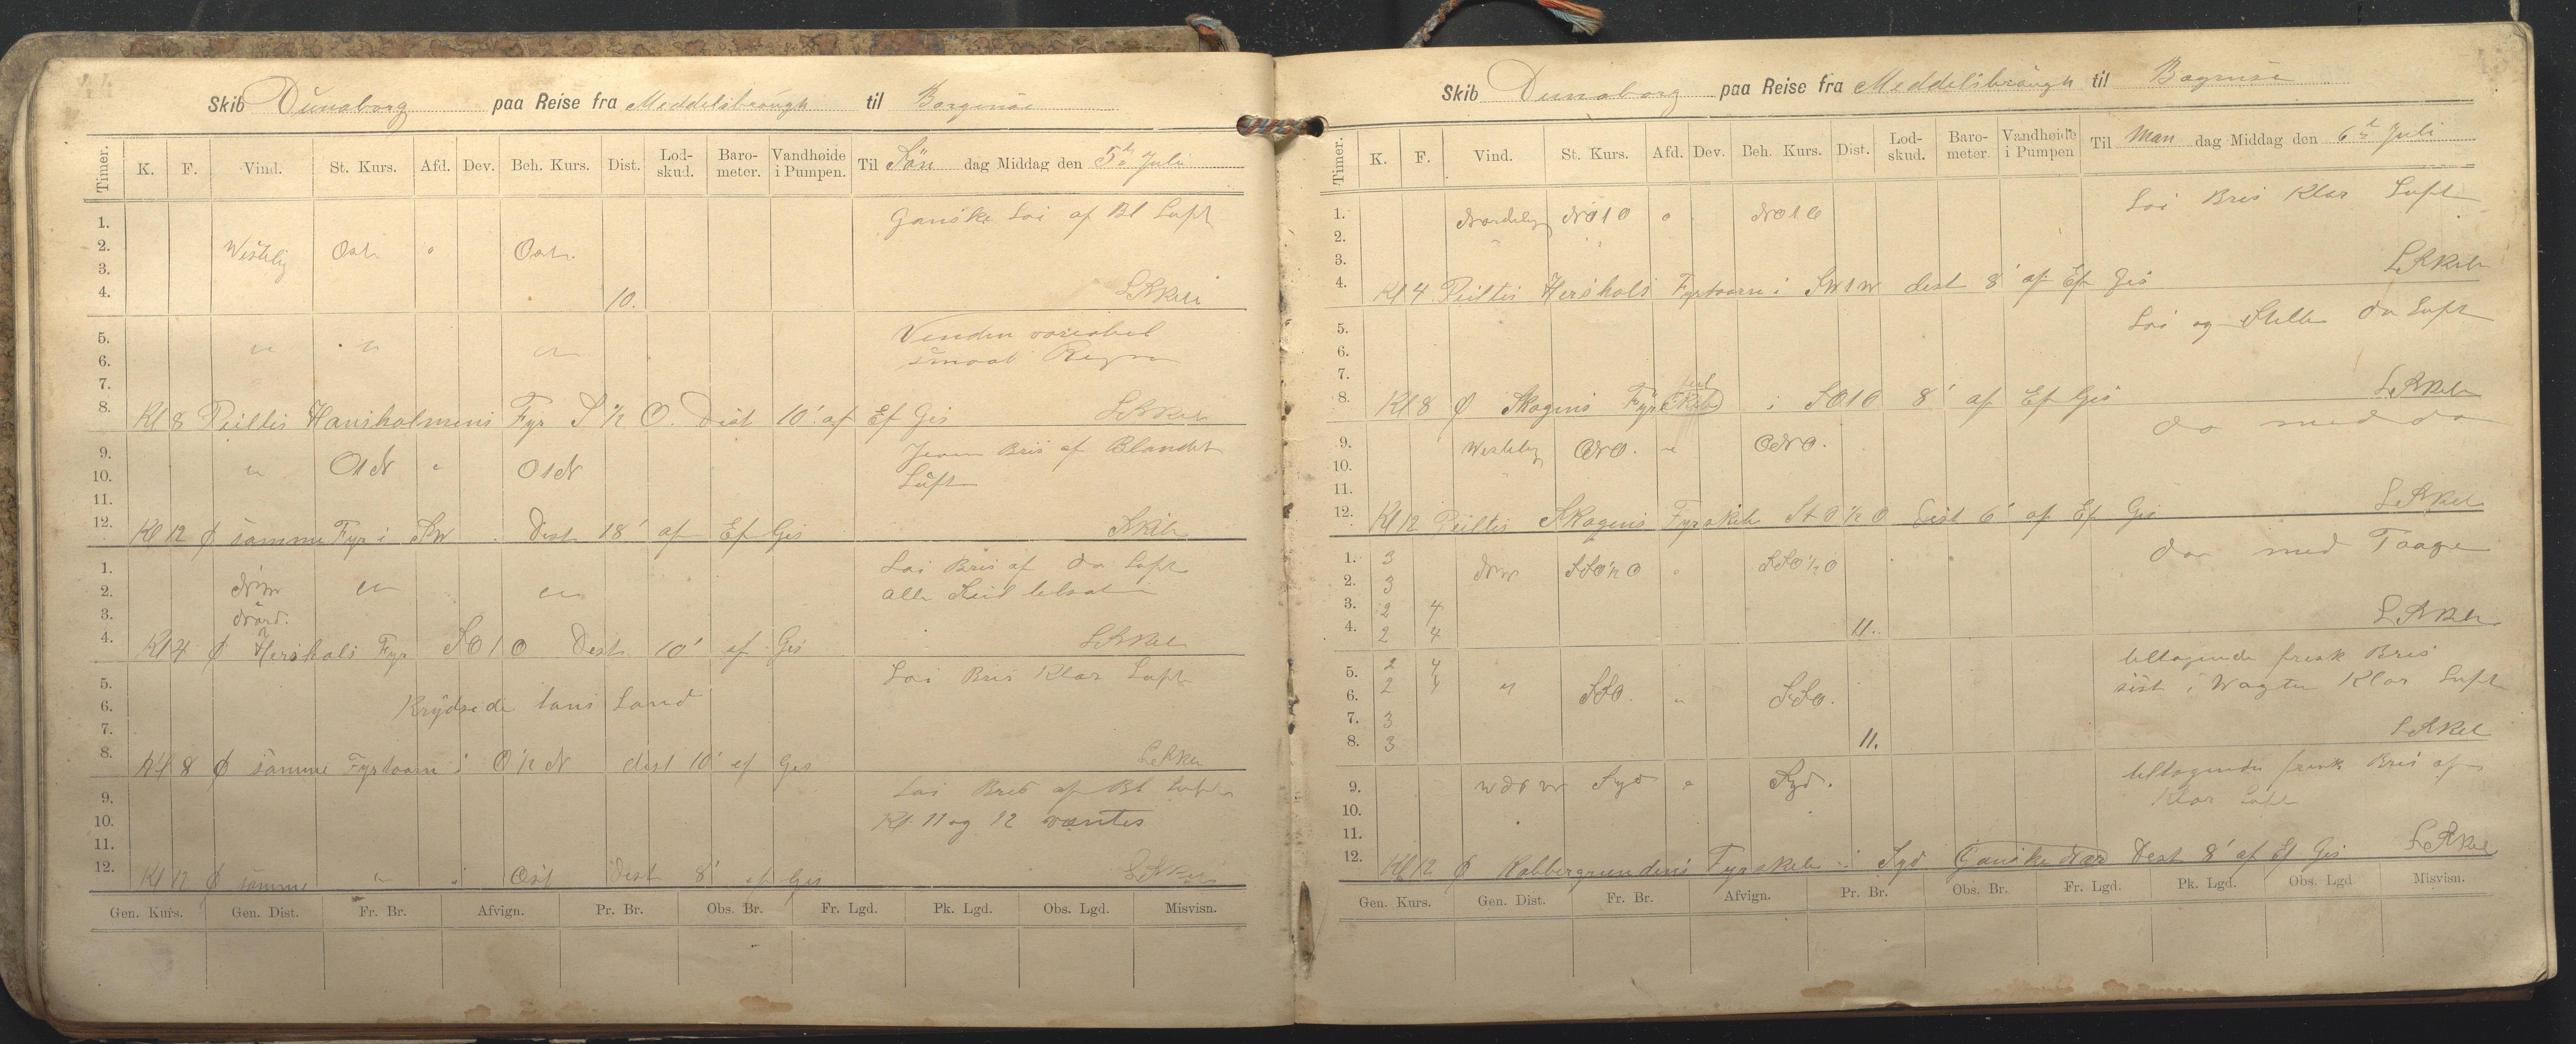 Skib Dünaborg paa Reise fra Meddelsbraugh til Borgensöe
Timer. K. F. Vind. St. Kurs. Afd. Dev. Beh. Kurs. Dist. Lod-skud. Baro-meter. Vandhøide i Pumpen. Til Sön dag Middag den 5te Juli
1. Ganske Loi af Bl Luft
2. Vestelig Ost " Ost
3.
4. 10.
5. Venden variabel
6. " " " smaat Regn
7.
8. Kl 8 Peiltes Hansholmens Fyr S ½ O. Dist 10' af Ef Gis
9. Jevn Bris af Blandet
10. " O1N " O1N Luft
11.
12. Kl 12 φ samme Fyr i SW Dist 18' af Ef Gis
1. Loi Bris af do Luft
2. NW " " alle Seil tilsat
3. Nord.
4. Kl 4 φ Hershals Fyr SO1O Dist 10' ef Gis
5. Loi Bris Klar Luft
6. Krydsede lans Land
7.
8. Kl 8 φ samme Fyrtaarn i O ½ N dist 10' ef Gis
9. Loi Bris af Bl Luft
10. Kl. 11 og 12 væntes
11.
12. Kl 12 φ samme " i Ost Dist 8' ef Gis
Gen. Kurs. Gen. Dist. Fr. Br. Afvign. Pr. Br. Obs. Br. Fr. Lgd. Pk. Lgd. Obs. Lgd. Misvisn.
Skib Dunaborg paa Reise fra Meddelsbraugh til
Timer. K. F. Vind. St. Kurs. Afd. Dev. Beh. Kurs. Dist. Lod-skud. Baro-meter. Vandhøide i Pumpen Til Man dag Middag den 6te Juli
1. Nordelig NO1O " NO1O Loi Bris Klar Luft
2.
3.
4. Kl 4 Peiltes Hershals Fyrtaarn i SW1W dist 8' af Ef Gis
5. Loi og Stille do Luft
6.
7.
8. Kl 8 φ Skagens Fyr i SO1O 8' af Ef Gis
9. Vestelig ONO. " ONO. do med do
10.
11.
12. Kl 12 Peiltes Skagens Fyrskib StO ½ O Dist 6' af Ef Gis
1. 3 NW SSO ½ O " SSO ½ O do med Taage
2. 3
3. 2 4
4. 2 4 11.
5. 2 4 tiltagende frisk Bris
6. 2 4 " SSO. " SSO. sist i Wagten Klar Luft
7. 3
8. 3 11.
9. WNW Syd " Syd. tiltagende frisk Bris af
10. Klar Luft
11.
12. Kl 12 φ Kobbergrundens Fyrskib i Syd Ganske Nær Dist 8' af Ef Gis
Gen. Kurs. Gen. Dist. Fr. Br. Afvign. Pr. Br. Obs. Br. Fr. Lgd. Pk. Lgd. Obs. Lgd. Misvisn.